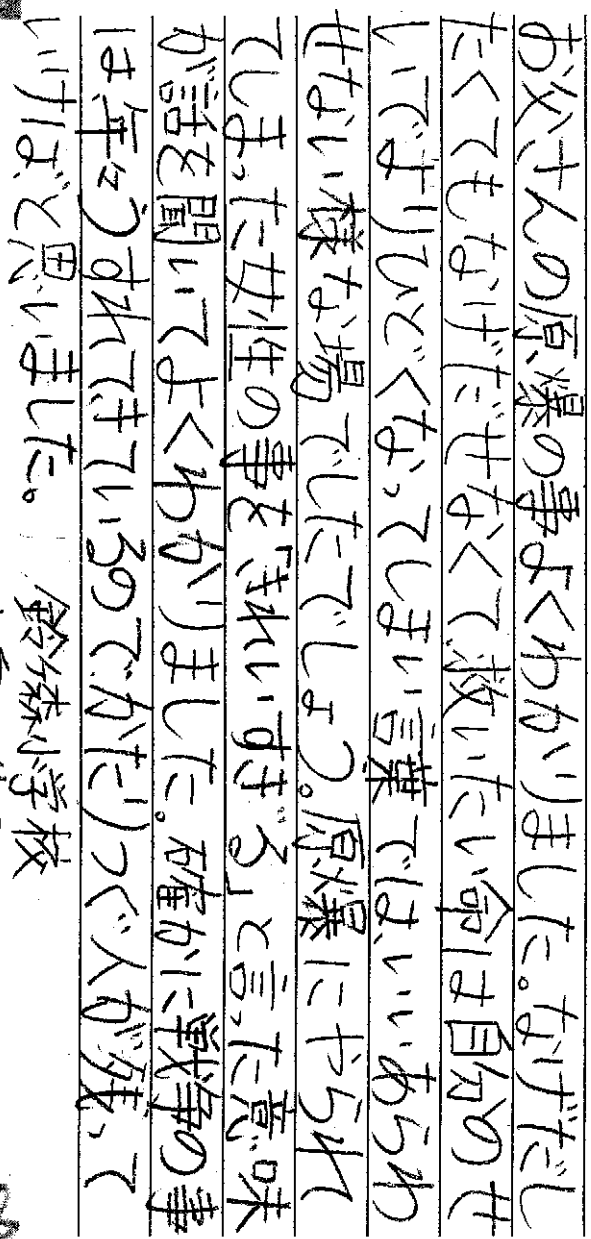 お父さんの原爆の事よくわかりました。なげだし
たくてもなげだせなくて救いたい命は自分のせ
いでよりひどくなってしまい言葉ではいいあらわ
せない様な場でしたでしょう。原爆にやられ
てしまった女性の事を「きれいすぎる」と言った意味
が話を聞いてよくわかりました。確かに戦争の事
は年々うすれてきているのでかたりつぐ人が残って
いけばと思いました。
鈴峯小学校